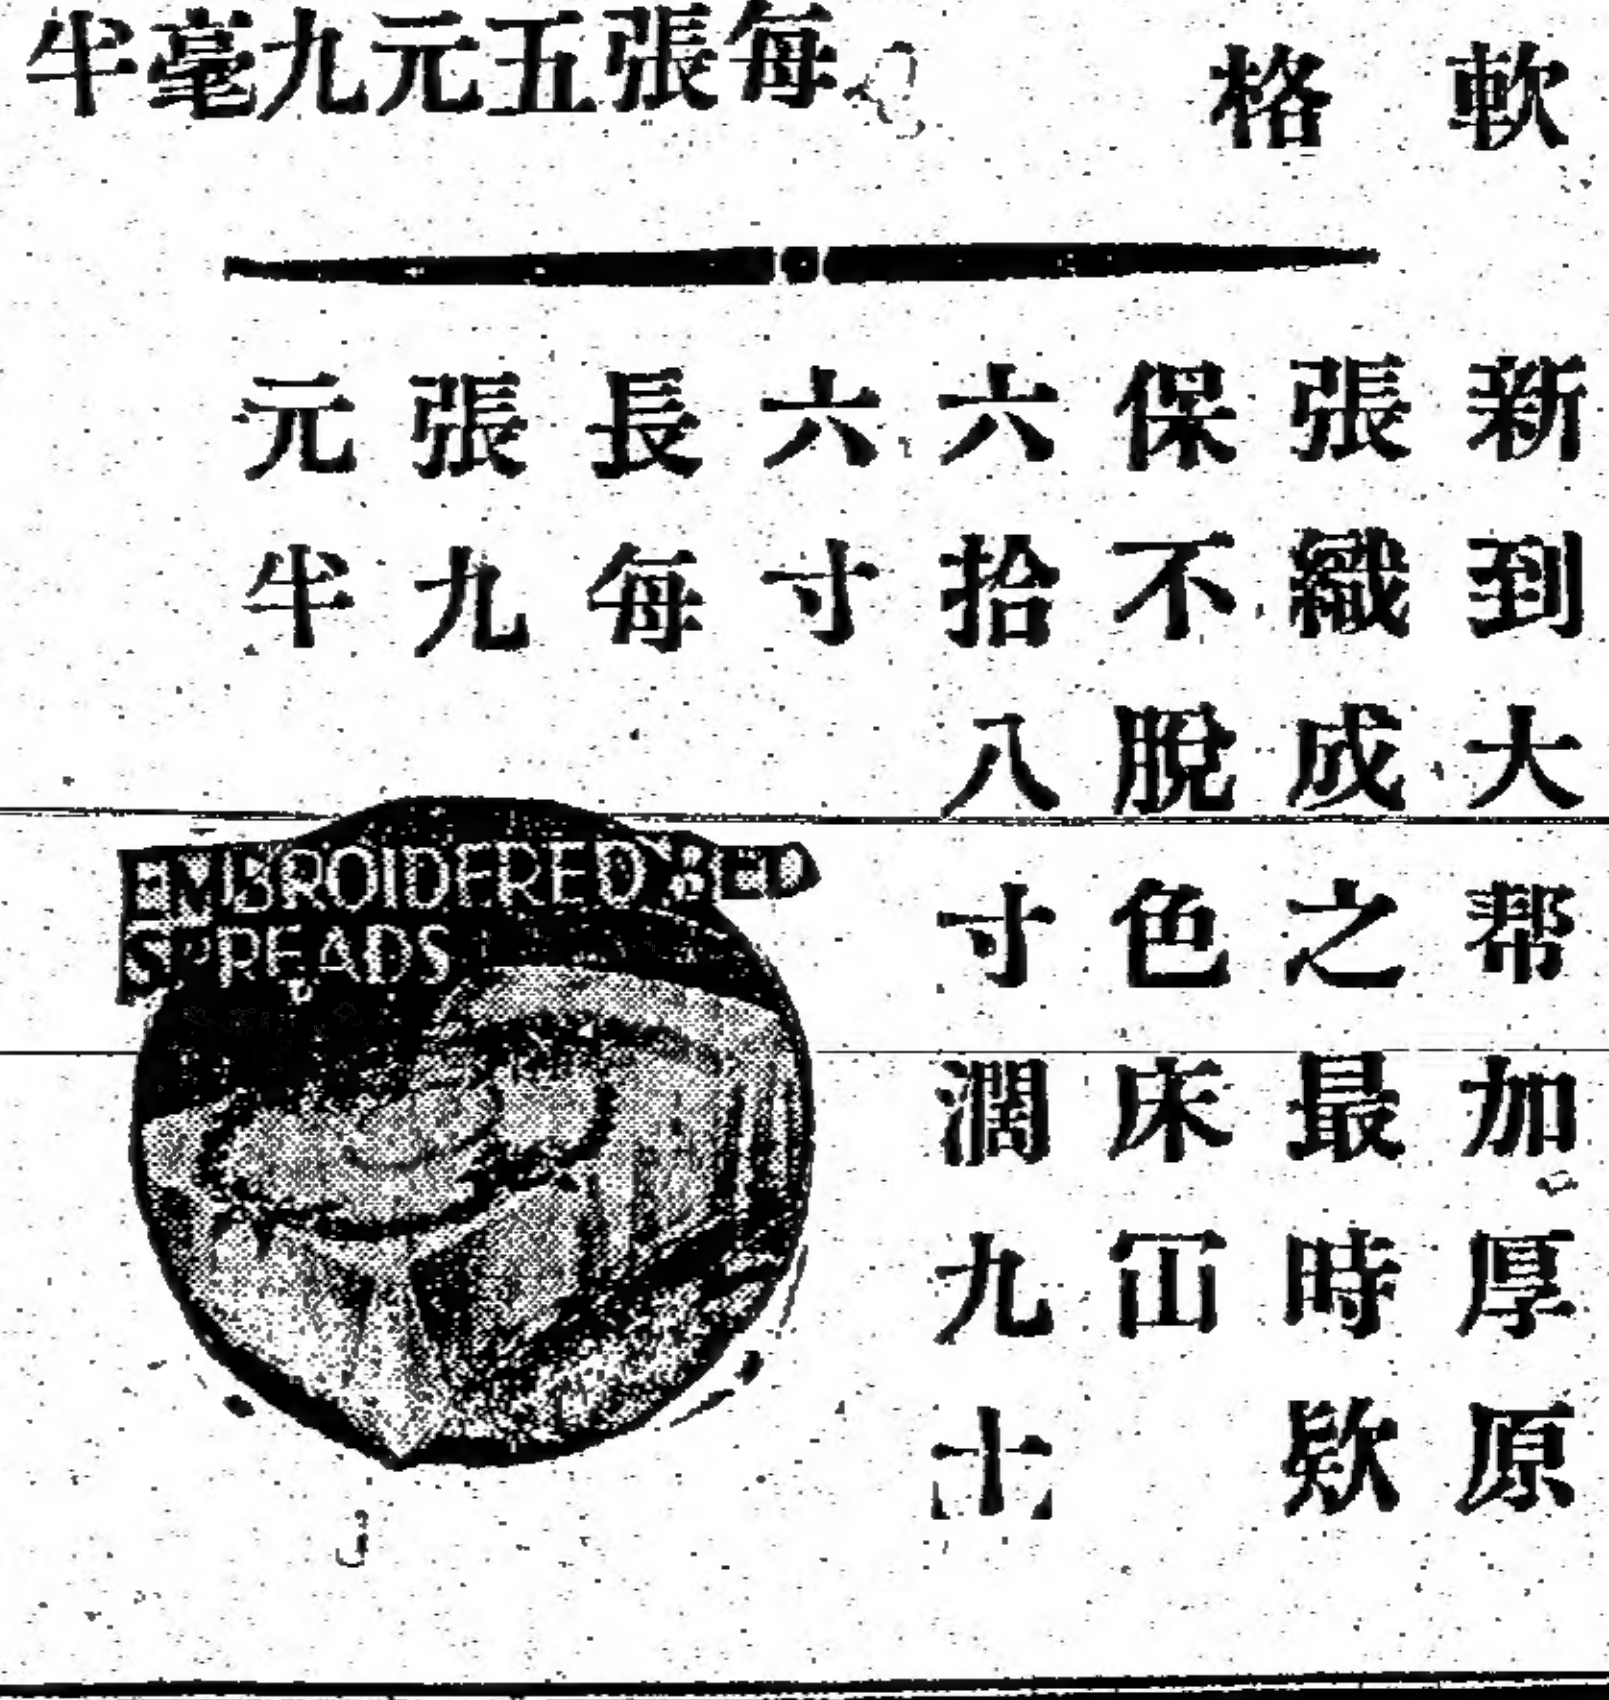 軟
格
每張五元九毫半
新到大帮加厚原
張織成之最時欵
保不脫色床冚
六拾八寸濶九十
六寸
長每
張九
元半
EMBROIDERED BED
SPREADS